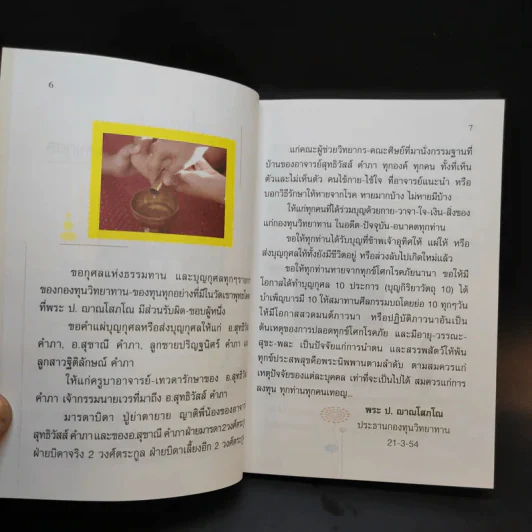 6
ขอกุศลแห่งธรรมทาน และบุญกุศลทุกๆราย
ของกองทุนวิทยาทาน-ของทุนทุกอย่างที่มีในวัดเขาพุทธโค
ที่พระ ป. ญาณโสภโณ มีส่วนรับผิด-ชอบผู้หนึ่ง
ขอคำแผ่บุญกุศลหรือส่งบุญกุศลให้แก่ อ.สุทธิวั
คำภา, อ.สุชาณี คำภา, ลูกชายปริญฐนิตร์ คำภา แล
ลูกสาวฐิติลักษณ์ คำภา
ให้แก่ครูบาอาจารย์-เทวดารักษาของ อ.สุทธิวัสส์
คำภา เจ้ากรรมนายเวรที่มาถึง อ.สุทธิวัสส์ คำภา
มารดาบิดา ปู่ย่าตายาย ญาติพี่น้องของอาจาร
สุทธิวัสส์ คำภาและของอ.สุชาณี คำภาฝ่ายมารดา2วงศ์ตระ
ฝ่ายบิดาจริง 2 วงศ์ตระกูล ฝ่ายบิดาเลี้ยงอีก 2 วงศ์ตระกูล
7
แก่คณะผู้ช่วยวิทยากร-คณะศิษย์ที่มานั่งกรรมฐานที่
บ้านของอาจารย์สุทธิวัสส์ คำภา ทุกองค์ ทุกคน ทั้งที่เห็น
ตัวและไม่เห็นตัว คนใช้กาย-ใช้ใจ ที่อาจารย์แนะนำ หรือ
บอกวิธีรักษาให้หายจากโรค หายมากบ้าง ไม่หายมีบ้าง
ให้แก่ทุกคนที่ได้ร่วมบุญด้วยกาย-วาจา-ใจ-เงิน-สิ่งของ
แก่กองทุนวิทยาทาน ในอดีต-ปัจจุบัน-อนาคตทุกท่าน
ขอให้ทุกท่านได้รับบุญที่ข้าพเจ้าอุทิศให้ แผ่ให้ หรือ
ส่งบุญกุศลให้ทั้งยังมีชีวิตอยู่ หรือล่วงลับไปเกิดใหม่แล้ว
ขอให้ทุกท่านหายจากทุกข์โศกโรคภัยนานา ขอให้มี
โอกาสได้ทำบุญกุศล 10 ประการ (บุญกิริยาวัตถุ 10) ได้
บำเพ็ญบารมี 10 ให้สมาทานศีลกรรมบถโดยย่อ 10 ทุกๆวัน
ให้มีโอกาสสวดมนต์ภาวนา หรือปฏิบัติภาวนาอันเป็น
ต้นเหตุของการปลอดทุกข์โศกโรคภัย และมีอายุ-วรรณะ-
สุขะ-พละ เป็นปัจจัยแก่การนำตน และสรรพสัตว์ให้พ้น
ทุกข์ประสพสุขคือพระนิพพานตามลำดับ ตามสมควรแก่
เหตุปัจจัยของแต่ละบุคคล เท่าที่จะเป็นไปได้ สมควรแก่การ
ลงทุน ทุกท่านทุกคนเทอญ..
พระ ป. ญาณโสภโณ
ประธานกองทุนวิทยาทาน
21-3-54